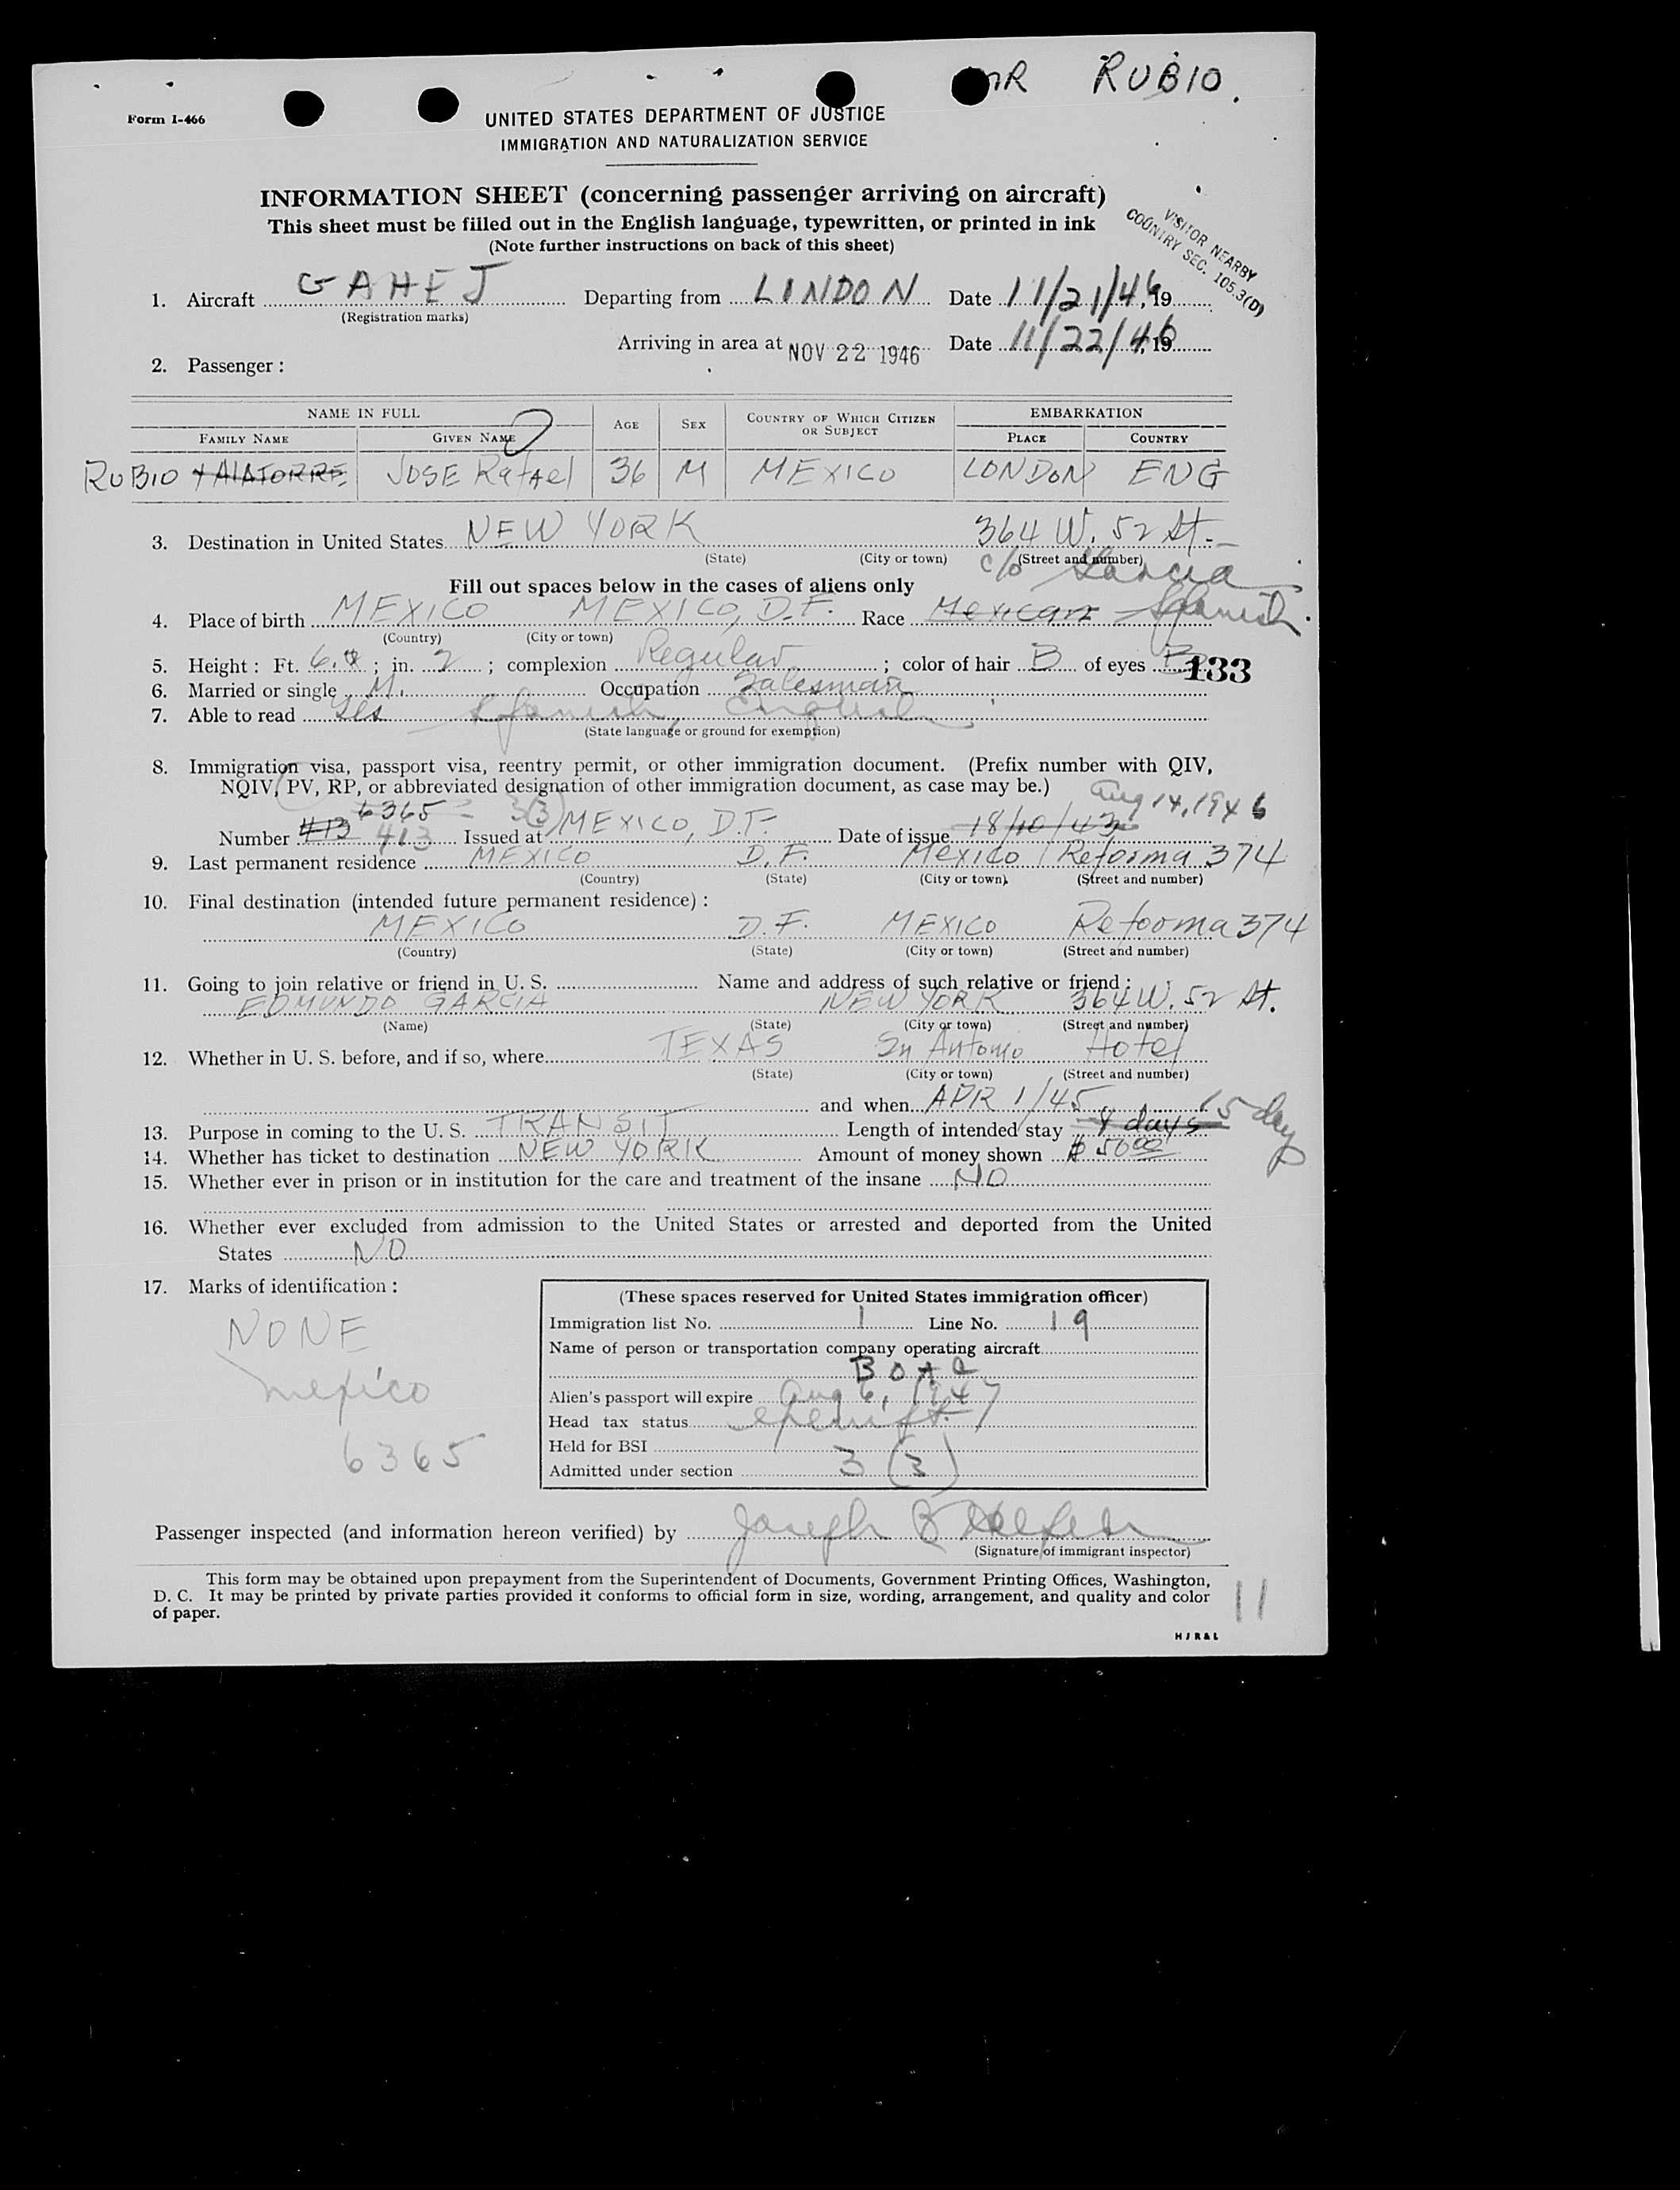 MR RUBIO.
Form I-466
UNITED STATES DEPARTMENT OF JUSTICE
IMMIGRATION AND NATURALIZATION SERVICE
INFORMATION SHEET (concerning passenger arriving on aircraft)
This sheet must be filled out in the English language, typewritten, or printed in ink
(Note further instructions on back of this sheet)
VISITOR NEARBY
COUNTRY SEC. 105.3(D)
1. Aircraft G AHEJ Departing from LONDON Date 11/21/46, 19
(Registration marks)
Arriving in area at NOV 22 1946 Date 11/22/46, 19
2. Passenger :
NAME IN FULL AGE SEX COUNTRY OF WHICH CITIZEN OR SUBJECT EMBARKATION
FAMILY NAME GIVEN NAME PLACE COUNTRY
RUBIO Y ALATORRE JOSE RafAel 36 M MEXICO LONDON ENG
3. Destination in United States NEW YORK 364 W. 52 St.
(State) (City or town) (Street and number)
c/o Garcia
Fill out spaces below in the cases of aliens only
4. Place of birth MEXICO MEXICO, D.F. Race Mexican Spanish
(Country) (City or town)
5. Height : Ft. 6.0 ; in. 2 ; complexion Regular ; color of hair B of eyes B
133
6. Married or single M. Occupation Salesman
7. Able to read Yes Spanish, English
(State language or ground for exemption)
8. Immigration visa, passport visa, reentry permit, or other immigration document. (Prefix number with QIV,
NQIV, PV, RP, or abbreviated designation of other immigration document, as case may be.)
6365 3(3) Aug 14, 1946
Number 413 413 Issued at MEXICO, D.F. Date of issue 18/10/43
9. Last permanent residence MEXICO D.F. Mexico Reforma 374
(Country) (State) (City or town) (Street and number)
10. Final destination (intended future permanent residence) :
MEXICO D.F. MEXICO Reforma 374
(Country) (State) (City or town) (Street and number)
11. Going to join relative or friend in U. S. Name and address of such relative or friend :
EDMUNDO GARCIA NEW YORK 364 W. 52 St.
(Name) (State) (City or town) (Street and number)
12. Whether in U. S. before, and if so, where TEXAS Sn Antonio Hotel
(State) (City or town) (Street and number)
and when APR 1/45
13. Purpose in coming to the U. S. TRANSIT Length of intended stay 4 days 15 days
14. Whether has ticket to destination NEW YORK Amount of money shown $ 50.00
15. Whether ever in prison or in institution for the care and treatment of the insane NO
16. Whether ever excluded from admission to the United States or arrested and deported from the United
States NO
17. Marks of identification :
NONE
Mexico
6365
(These spaces reserved for United States immigration officer)
Immigration list No. 1 Line No. 19
Name of person or transportation company operating aircraft
BOAC
Alien's passport will expire Aug 6, 1947
Head tax status
Held for BSI
Admitted under section 3 (3)
Passenger inspected (and information hereon verified) by Joseph B
(Signature of immigrant inspector)
This form may be obtained upon prepayment from the Superintendent of Documents, Government Printing Offices, Washington,
D. C. It may be printed by private parties provided it conforms to official form in size, wording, arrangement, and quality and color
of paper.
11
HJR&L